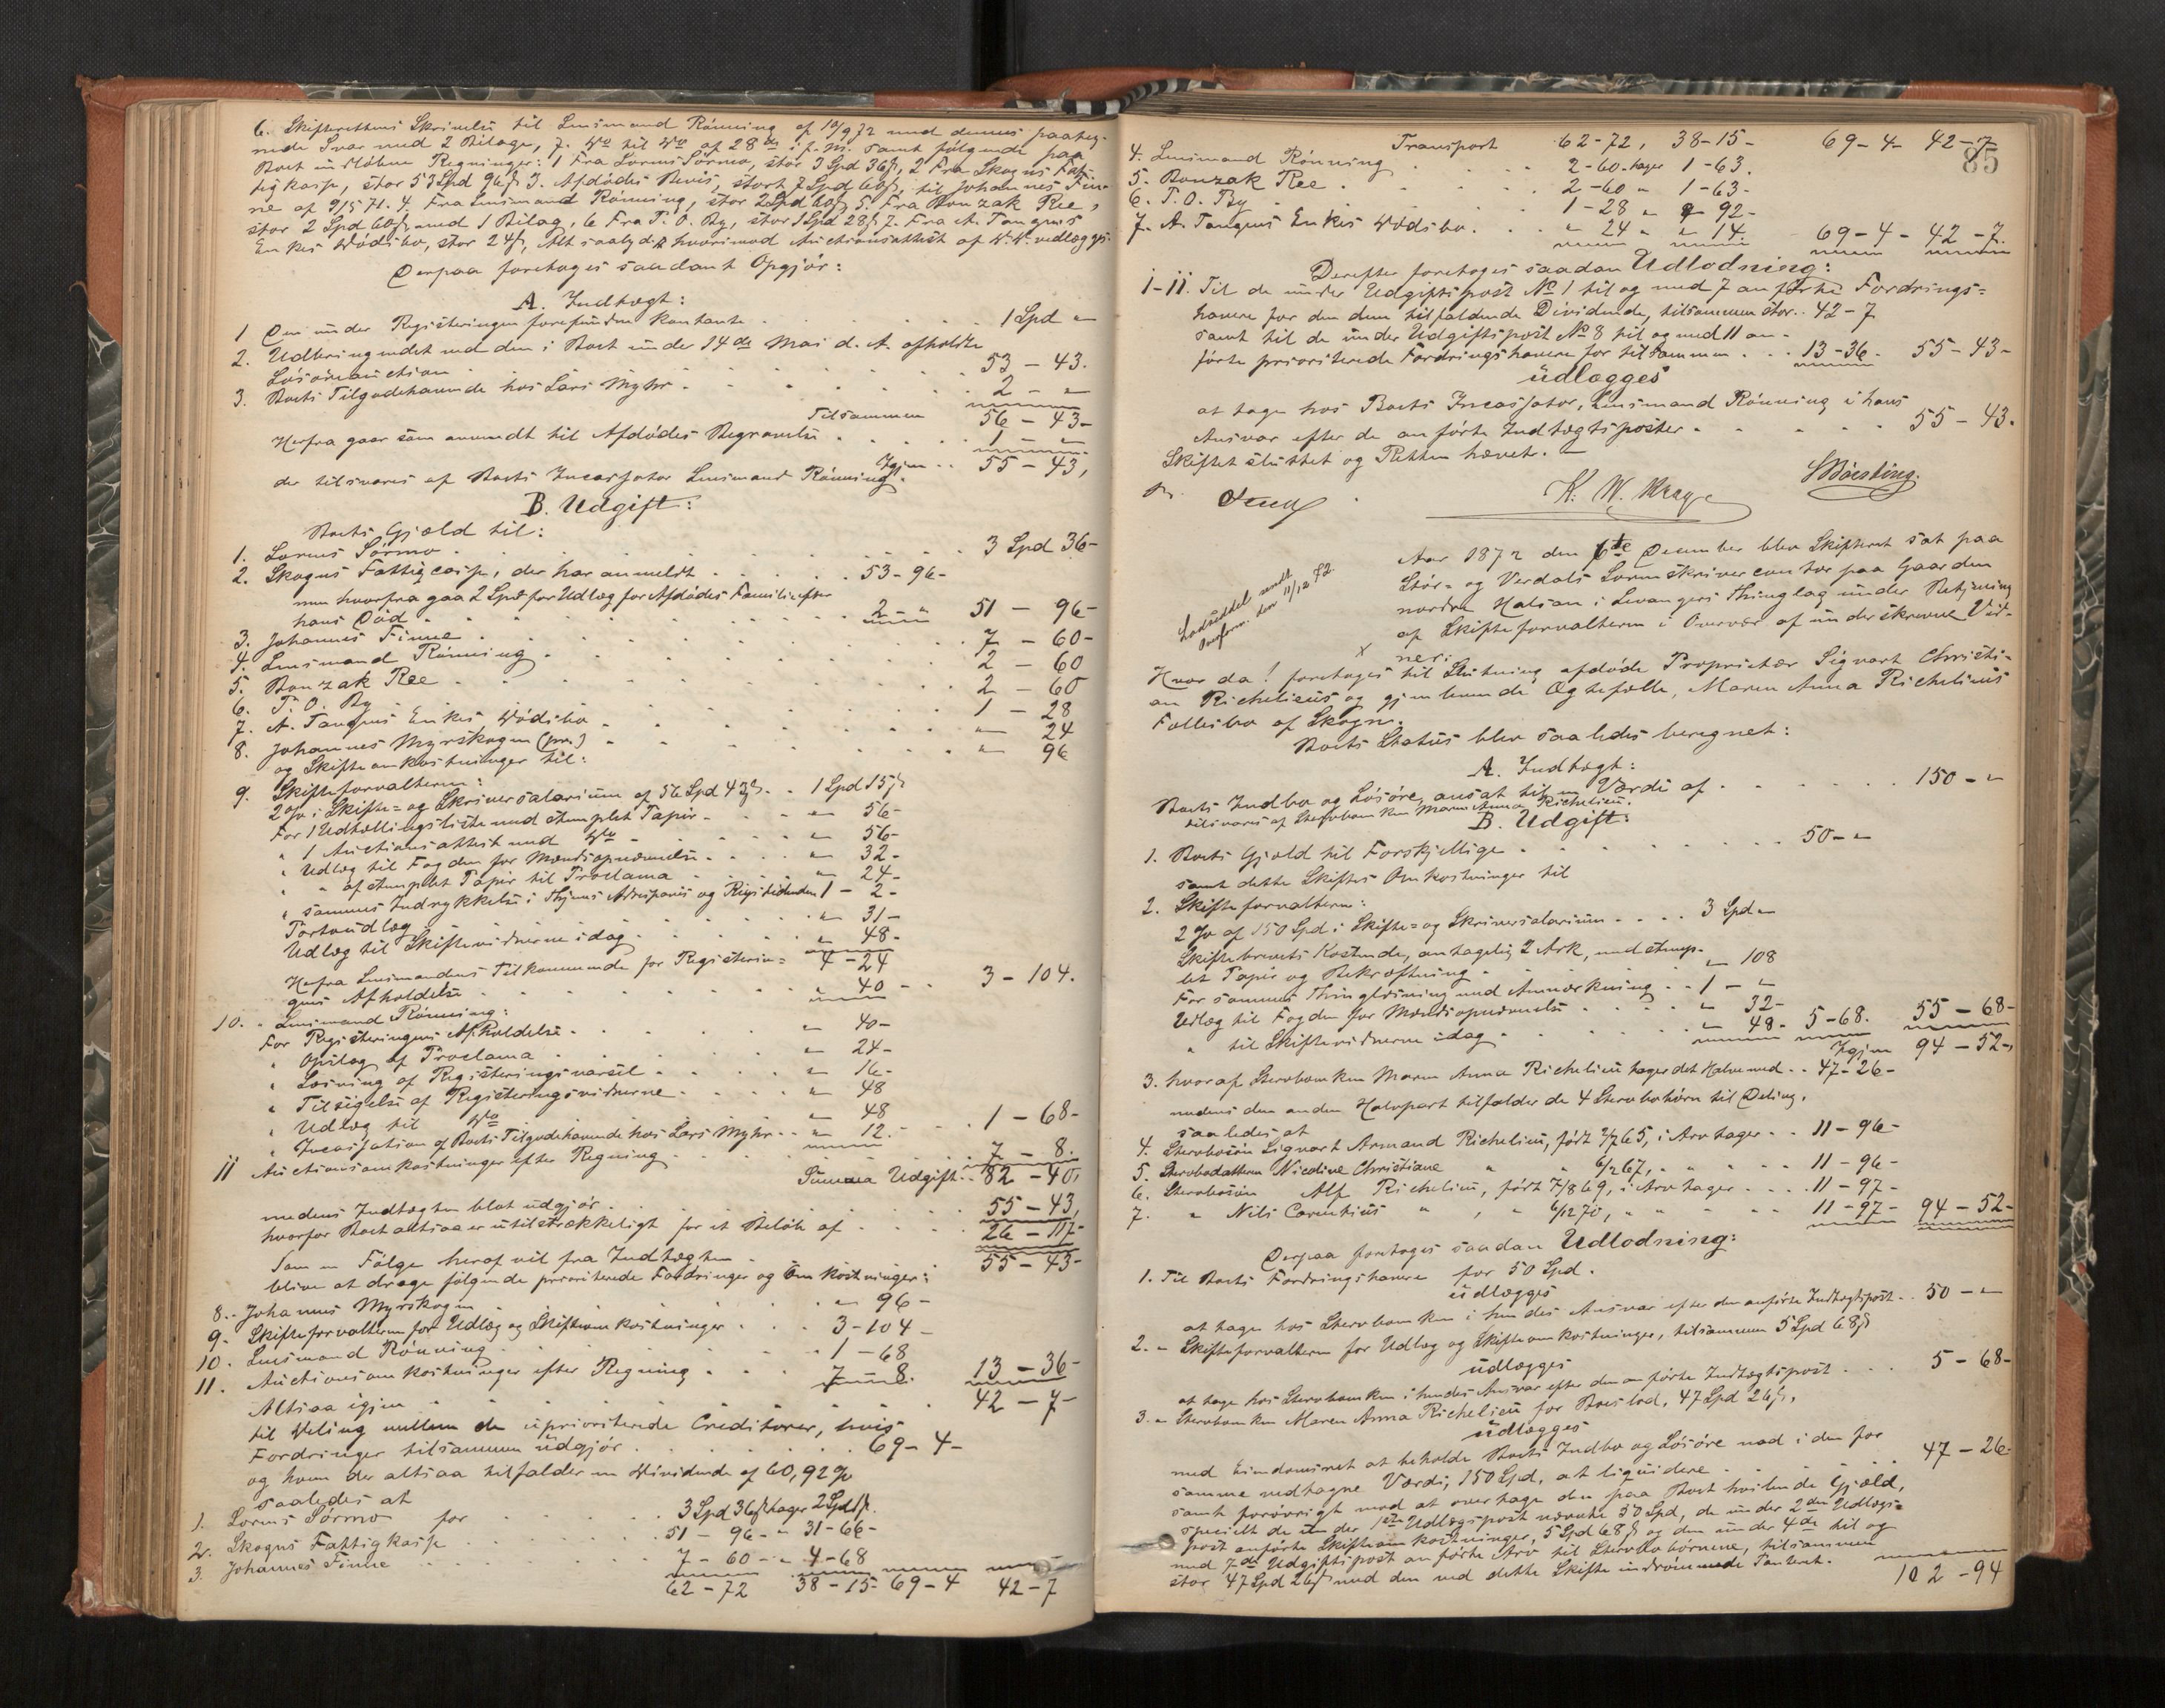 6. Skifterettens Skrivelse til Lensmand Rönning af 10/9 72 med dennes paateg-
nede Svar med 2 Bilage, 7. Do til Do af 28de f. M. samt følgende paa
Boet indløbne Regninger: 1 Fra Lorns Sörmo, stor 3 Spd 36 ß, 2 Fra Skogns Fat-
tigkasse, stor 53 Spd 96 ß 3. Afdødes Bevis, stort 7 Spd 60 ß, til Johannes Fin-
ne af 9/5 71. 4. Fra Lensmand Rönning, stor 2 Spd 60 ß 5. Fra Bonzak Ree,
stor 2 Spd 60 ß, med 1 Bilag, 6 Fra T. O. By, stor 1 Spd 28 ß 7. Fra A. Tangens
Enkes Dödsbo, stor 24 ß, Alt hvorimod Auctionsattest af D. D. vedlægges.
Derpaa foretoges saadant Opgjör:
A. Indtægt:
1 Den under Registeringen forefundne Kontante . . . 1 Spd "
2. Udbringendet ved den i Boet under 14de Mai d. A. afholdte
Lösöreauction . . . 53 - 43.
3. Boets Tilgodehavende hos Lars Myhr . . . 2 - "
Tilsammen 56 - 43 -
Herfra gaar som anvendt til Afdödes Begravelse . . . 1 - "
Igjen . . 55 - 43,
der tilsvares af Boets Incassator Lensmand Rönning.
B. Udgift:
Boets Gjæld til:
1. Lorns Sörmo . . . 3 Spd 36 -
2. Skogns Fattigcasse, der har anmeldt . . . 53 - 96 -
men hvorfra gaa 2 Spd for Udlæg for Afdödes Familie efter
hans Död . . . 2 - " 51 - 96 -
3. Johannes Finne . . . 7 - 60 -
4. Lensmand Rönning . . . 2 - 60
5. Bonzak Ree . . . 2 - 60
6. T. O. By . . . 1 - 28
7. A. Tangens Enkes Dödsbo . . . " 24
8. Johannes Myrskogen (pr.) . . . " 96
og Skifteomkostninger til:
9. Skifteforvalteren:
2 % i Skifte- og Skriversalarium af 56 Spd 43 ß . . 1 Spd 15 ß
For 1 Udtællingsliste med stemplet Papir . . . " 56 -
" 1 Auctionsattest med Do . . . " 56 -
" Udlæg til Fogden for Mændsopnævnelse . . . " 32 -
" " af stemplet Papir til Proclama . . . " 24 -
" sammes Indrykkelse i Thjems Adresseavis og Rigstidenden 1 - 2 -
Portoudlæg . . . " 31 -
Udlæg til Skiftevidnerne idag . . . " 48 -
4 - 24
Herfra Lensmandens Tilkommende for Registerin-
gens Afholdelse . . . " 40 - . . 3 - 104.
10. " Lensmand Rönning:
For Registeringens Afholdelse . . . " 40 -
" Opslag af Proclama . . . " 24 -
" Læsning af Registeringsvarsel . . . " 16 -
" Tilsigelse af Registeringsvidnerne . . . " 48
" Udlæg til Do . . . " 48
" Incassation af Boets Tilgodehavende hos Lars Myhr . . " 12. . . 1 - 68 -
11 Auctionsomkostninger efter Regning . . . 7 - 8.
Summa Udgift . . 82 - 40,
medens Indtægten blot udgjör . . . 55 - 43,
hvorfor Boet altsaa er utilstrækkeligt for et Belöb af . . . 26 - 117 -
Som en Fölge heraf vil fra Indtægten . . . 55 - 43 -
blive at drage fölgende prioriterede Fordringer og Omkostninger:
8. - Johannes Myrskogen . . . " 96 -
9 - Skifteforvalteren for Udlæg og Skifteomkostninger . . . 3 - 104 -
10. Lensmand Rönning . . . 1 - 68
11. Auctionsomkostninger efter Regning . . . 7 - 8. 13 - 36 -
Altsaa igjen . . . 42 - 7 -
til Deling mellem de uprioriterede Creditorer, hvis
Fordringer tilsammen udgjör . . . 69 - 4 -
og hvem der altsaa tilfalder en Dividende af 60,92 %
saaledes at
1. Lorns Sörmo for . . . 3 Spd 36 ß tager 2 Spd 1 ß.
2. Skogns Fattigkasse . . . 51 - 96 - " 31 - 66 -
3. Johannes Finne . . . 7 - 60 - " 4 - 68
62 - 72 38 - 15 - 69 - 4 42 - 7
85
Transport 62 - 72, 38 - 15 - 69 - 4 - 42 - 7
4. Lensmand Rönning . . . 2 - 60 - tager 1 - 63.
5. Bonzak Ree . . . 2 - 60 " 1 - 63 -
6. T. O. By . . . 1 - 28 " " 92 -
7. A. Tangens Enkes Dödsbo . . . " 24 " " 14 69 - 4 - 42 - 7.
Derefter foretoges saadan Udlodning:
1-11. Til de under Udgiftspost No 1 til og med 7 anförte Fordrings-
havere for den dem tilfaldende Dividende, tilsammen stor . . 42 - 7
samt til de under Udgiftspost No 8 til og med 11 an-
förte prioriterede Fordringshavere for tilsammen . . . 13 - 36 - 55 - 43 -
udlægges
at tage hos Boets Incassator, Lensmand Rönning i hans
Ansvar efter de anförte Indtægtsposter . . . 55 - 43.
Skiftet sluttet og Retten hævet. -
K. W. Krag
Aar 1872 den 6te December blev Skifteret sat paa
Stör- og Verdals Sorenskrivercontor paa Gaarden
nordre Halsan i Levangers Thinglag under Betjening
af Skifteforvalteren i Overvær af underskrevne Vid-
ner:
Lodseddel sendt
den 11/12 72.
x
Hvor da! foretoges til Slutning afdöde Proprietær Sigvart Christi-
an Richelieus og gjenlevende Ægtefælle, Maren Anna Richelieus
Fællesbo af Skogn.
Boets Status blev saaledes beregnet:
A. Indtægt:
Boets Indbo og Lösöre, ansat til en Værdi af . . . 150 - "
tilsvares af Sterboenken Maren Anna Richelieu.
B. Udgift:
1. Boets Gjæld til Forskjellige . . . 50 - "
samt dette Skiftes Omkostninger til
2. Skifteforvalteren:
2 % af 150 Spd i Skifte- og Skriversalarium . . . . 3 Spd "
Skiftebrevets Kostende, antagelig 2 Ark, med stemp-
let Papir og Bekræftning . . . " 108
For sammes Thinglæsning med Anmærkning . . 1 - "
Udlæg til Fogden for Mændsopnævnelse . . . " 32 -
" til Skiftevidnerne idag . . . " 48 - 5 - 68. 55 - 68 -
Igjen 94 - 52 -,
3. hvoraf Sterboenken Maren Anna Richelieu tager det Halve med . . 47 - 26 -
medens den anden Halvpart tilfalder de 4 Sterbobörn til Deling,
saaledes at
4. Sterbosön Sigvart Armand Richelieu, födt 7/7 65, i Arv tager . . 11 - 96 -
5. Sterbodatteren Nicoline Christiane " " 6/2 67, " " " 11 - 96 -
6. Sterbosön Alf Richelieu, födt 7/8 69, i Arv tager . . . 11 - 97 -
7. " Nils Carentius " , " 6/12 70, " " " 11 - 97 - 94 - 52 -
Derpaa foretoges saadan Udlodning:
1. Til Boets Fordringshavere for 50 Spd.
udlægges
at tage hos Sterboenken i hendes Ansvar efter den anförte Indtægtspost . . 50 - "
2. " Skifteforvalteren for Udlæg og Skifteomkostninger, tilsammen 5 Spd 68 ß
udlægges
at tage hos Sterboenken i hendes Ansvar efter den anförte Indtægtspost . . . 5 - 68 -
3. " Sterboenken Maren Anna Richelieu for Boeslod, 47 Spd 26 ß,
udlægges
med Eiendomsret at beholde Boets Indbo og Lösöre mod i den for
samme vedtagne Værdi, 150 Spd, at liqvidere . . . 47 - 26 -
samt forövrigt mod at overtage den paa Boet hvilende Gjæld,
specielt de under 1ste Udlægspost nævnte 50 Spd, de under 2den Udlægs-
post anförte Skifteomkostninger, 5 Spd 68 ß og den under 4de til og
med 7de Udgiftspost anförte Arv til Sterbobörnene, tilsammen
stor 47 Spd 26 ß mod den ved dette Skifte indrömmede Panteret.
102 - 94